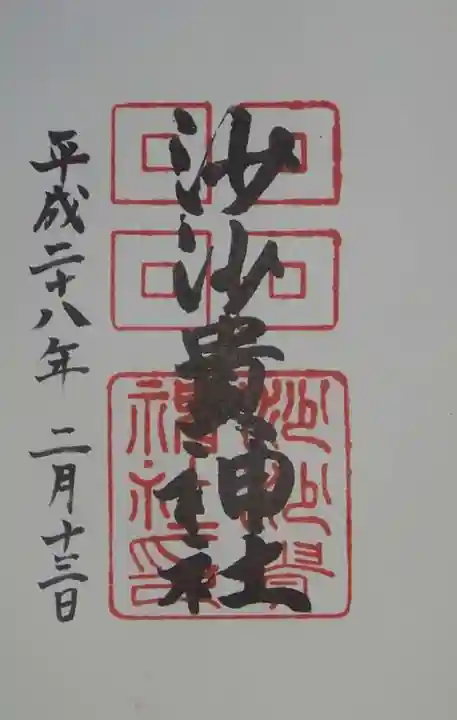 沙沙貴神社
沙沙貴
神社印
平成二十八年 二月十三日